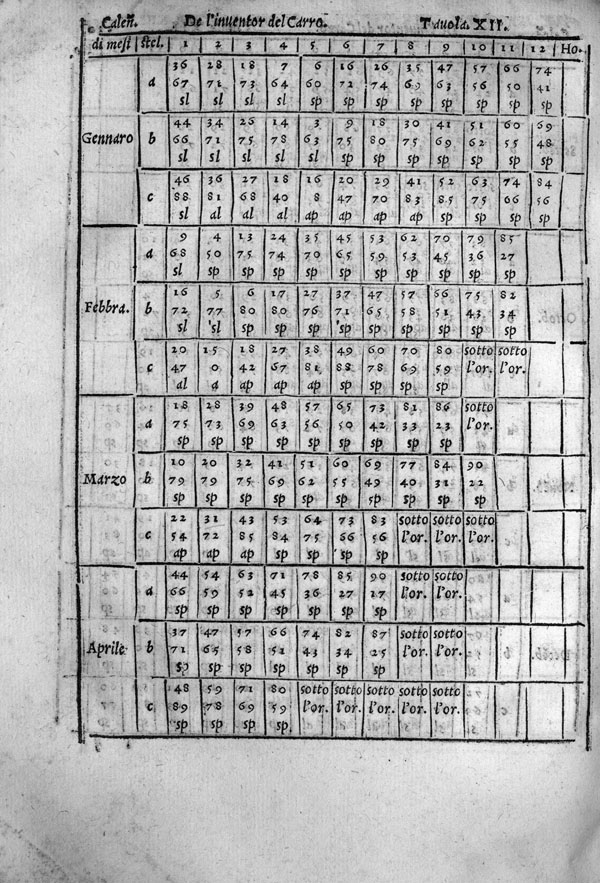 Caleñ. De l'inventor del Carro. Tavola. XII.
di mesi stel. 1 2 3 4 5 6 7 8 9 10 11 12 Ho.
36 28 18 7 6 16 26 35 47 57 66 74
a 67 71 73 64 60 72 74 69 63 56 50 41
sl sl sl sl sp sp sp sp sp sp sp sp
44 34 26 14 3 9 18 30 41 51 60 69
Gennaro b 66 71 75 78 63 75 80 75 69 62 55 48
sl sl sl sl sl sp sp sp sp sp sp sp
46 36 27 18 16 20 29 41 52 63 74 84
c 88 81 68 40 8 47 70 83 85 75 66 56
sl al al al ap ap ap ap sp sp sp sp
9 4 13 24 35 45 53 62 70 79 85
a 68 50 75 74 70 65 59 53 45 36 27
sl sp sp sp sp sp sp sp sp sp sp
16 5 6 17 27 37 47 57 66 75 82
Febbra. b 72 77 80 80 76 71 65 58 51 43 34
sl sl sp sp sp sp sp sp sp sp sp
20 15 18 27 38 49 60 70 80 sotto sotto
c 47 0 42 67 81 88 78 69 59 l'or. l'or.
al a ap ap ap sp sp sp sp
18 28 39 48 57 65 73 81 86 sotto
a 75 73 69 63 56 50 42 33 23 l'or.
sp sp sp sp sp sp sp sp sp
10 20 32 41 51 60 69 77 84 90
Marzo b 79 79 75 69 62 55 49 40 31 22
sp sp sp sp sp sp sp sp sp sp
22 31 43 53 64 73 83 sotto sotto sotto
c 54 72 85 84 75 66 56 l'or. l'or. l'or.
ap ap ap sp sp sp sp
44 54 63 71 78 85 90 sotto sotto
a 66 59 52 45 36 27 17 l'or. l'or.
sp sp sp sp sp sp sp
37 47 57 66 74 82 87 sotto sotto
Aprile. b 71 65 58 51 43 34 25 l'or. l'or.
sp sp sp sp sp sp sp
48 59 71 80 sotto sotto sotto sotto sotto
c 89 78 69 59 l'or. l'or. l'or. l'or. l'or.
sp sp sp sp